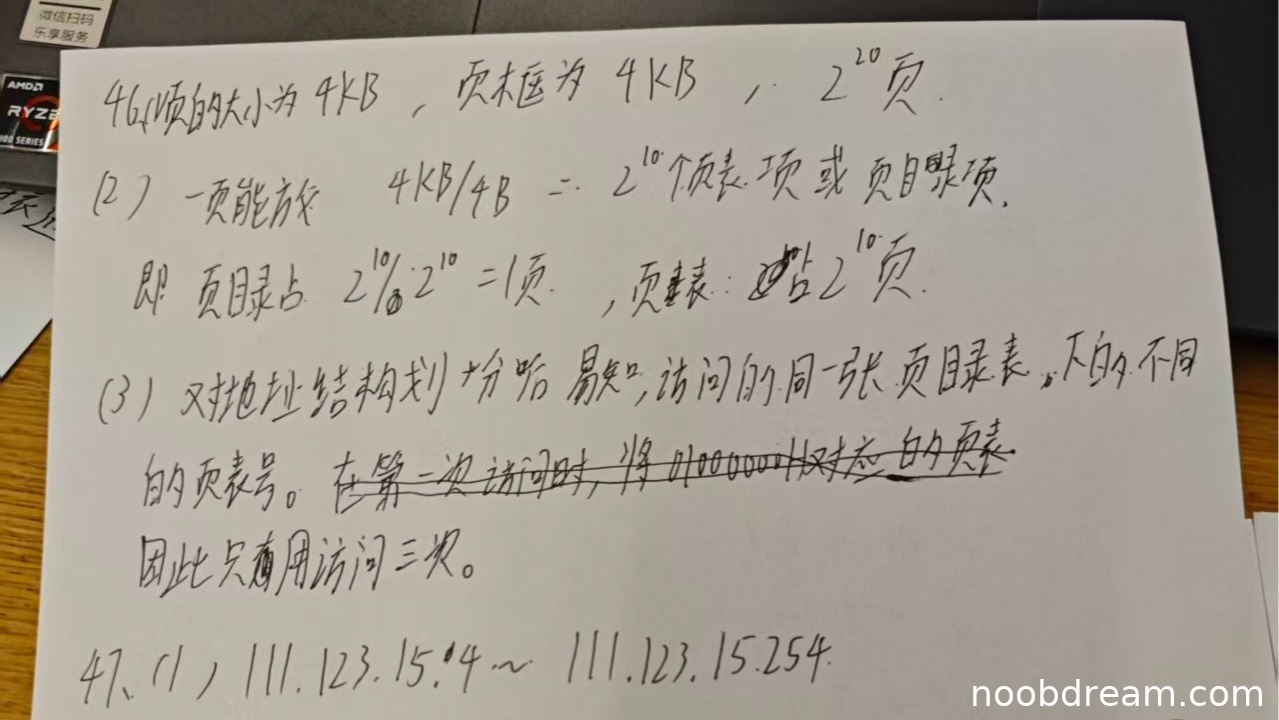 微信扫码
乐享服务
AMD
RYZE
000 SERIES
46.(1)页的大小为 4KB ,页框为 4KB , 2^20 页.
(2) 一页能放 4KB/4B = 2^10 个页表项 或 页目录项.
即 页目录占 2^10/2^10 = 1页. ,页表: 占 2^10 页.
(3) 对地址结构划分后 易知,访问的同一张 页目录表。下的不同
的页表号。在第一次访问时,将 0100000011对应的页表
因此只用访问三次。
47、(1) 111.123.15.4 ~ 111.123.15.254.
noobdream.com